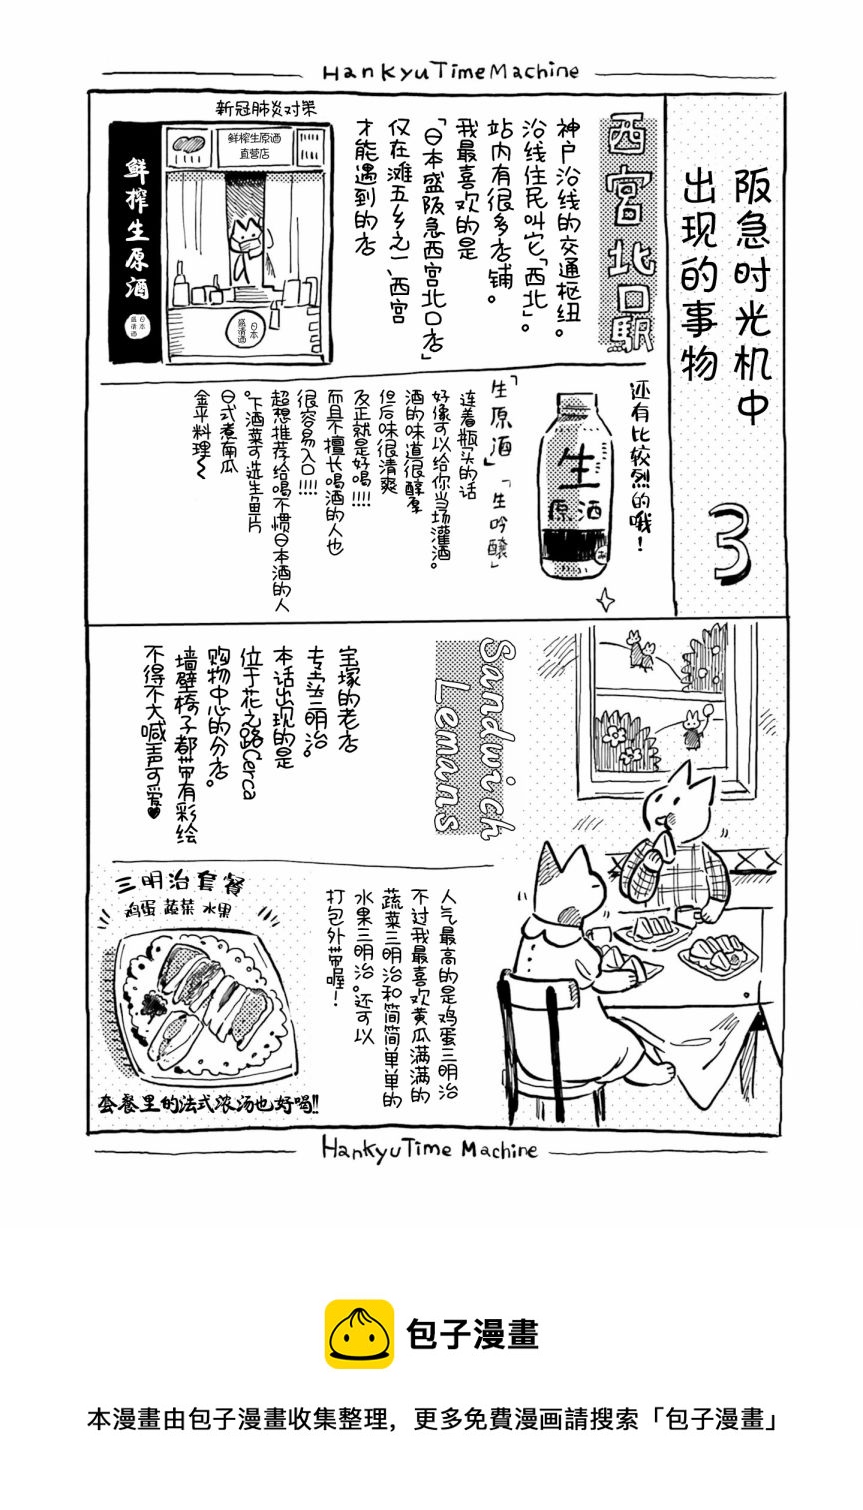 HankyuTimeMachine
阪急时光机中
出现的事物
3
西宫北口駅
神户沿线的交通枢纽。
沿线住民叫它「西北」。
站内有很多店铺。
我最喜欢的是
「日本盛阪急西宫北口店」
仅在滩五乡之一、西宫
才能遇到的店
新冠肺炎对策
鲜榨生原酒
直营店
鲜榨生原酒
日本
盛清酒
日本
盛清酒
还有比较烈的哦！
生
原酒
「生原酒」
「生吟醸」
连着瓶头的话
好像可以给你当场灌酒。
酒的味道很醇厚
但后味很清爽
反正就是好喝!!!!
而且不擅长喝酒的人也
很容易入口!!!!
超想推荐给喝不惯日本酒的人
。下酒菜可选生鱼片
日式煮南瓜
金平料理～
Sandwich
Lemans
宝塚的老店
专卖三明治。
本话出现的是
位于花之路Cerca
购物中心的分店。
墙壁椅子都带有彩绘
不得不大喊声可爱♥
人气最高的是鸡蛋三明治
不过我最喜欢黄瓜满满的
蔬菜三明治和简简单单的
水果三明治。还可以
打包外带喔！
三明治套餐
鸡蛋 蔬菜 水果
套餐里的法式浓汤也好喝!!
HankyuTime Machine
包子漫畫
本漫畫由包子漫畫收集整理，更多免費漫画請搜索「包子漫畫」